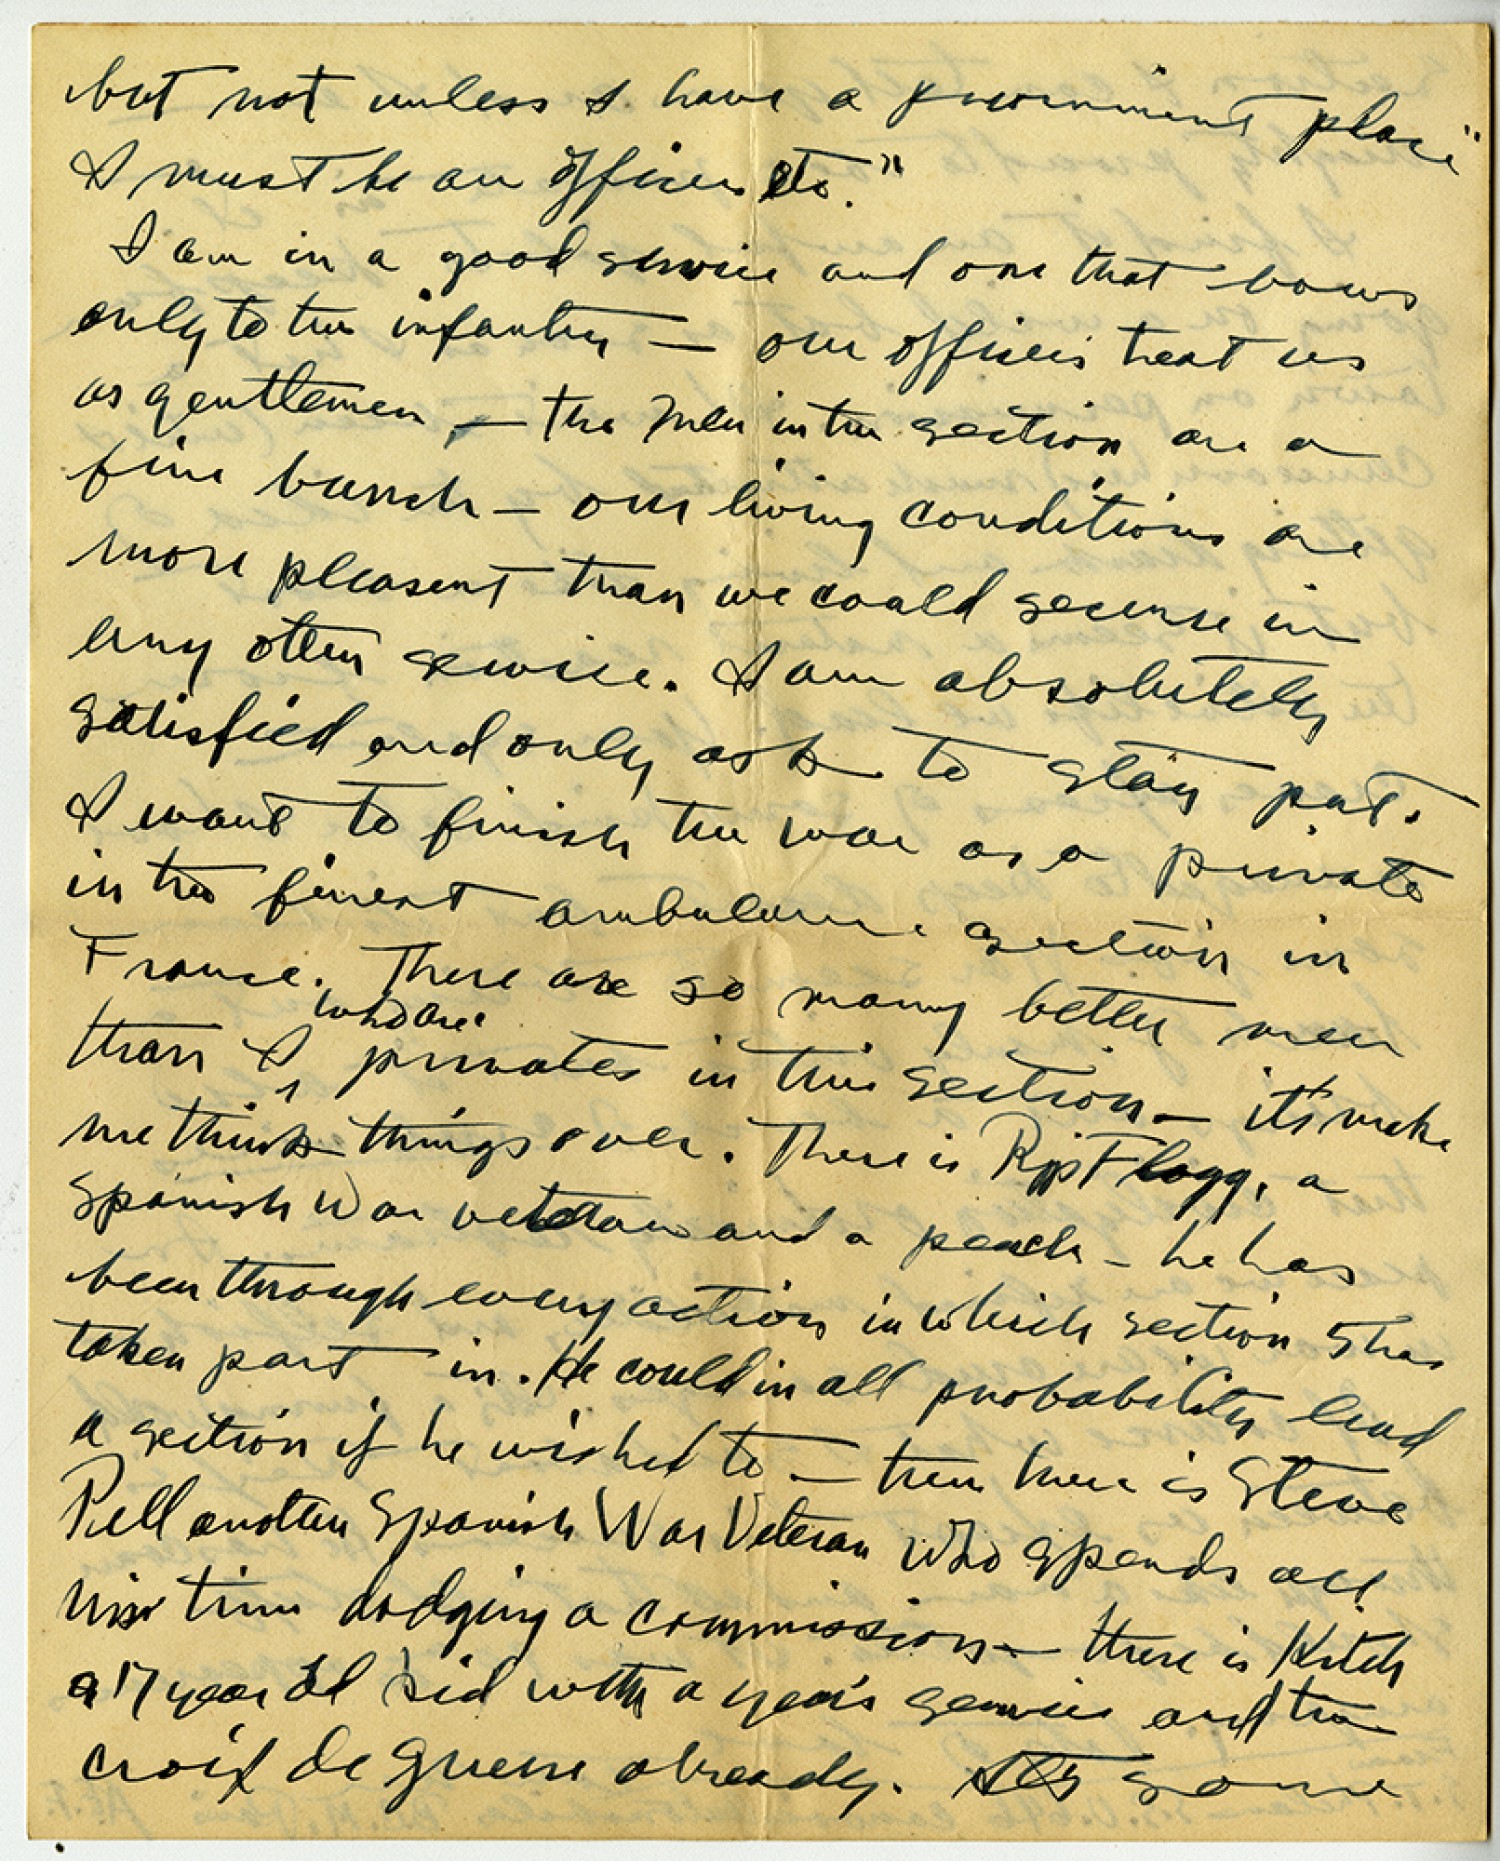 but not unless I have a prominent place"
I must be an officer etc."
I am in a good service and one that bows
only to the infantry — our officers treat us
as gentlemen, — the men in the section are a
fine bunch — our living conditions are
more pleasent than we could secure in
any other service. I am absolutely
satisfied and only ask to stay put.
I want to finish the war as a private
in the finest ambulance section in
France. There are so many better men
than I who are privates in this section — its make
me think things over. There is Rip Flagg, a
Spanish War veteran and a peach — he has
been through every action in which section 5 has
taken part in. He could in all probability lead
a section if he wished to — then there is Steve
Pell another Spanish War Veteran who spends all
his time dodging a commission — there is Kitch
a 17 year old kid with a year's service and the
croix de guerre already. Its some